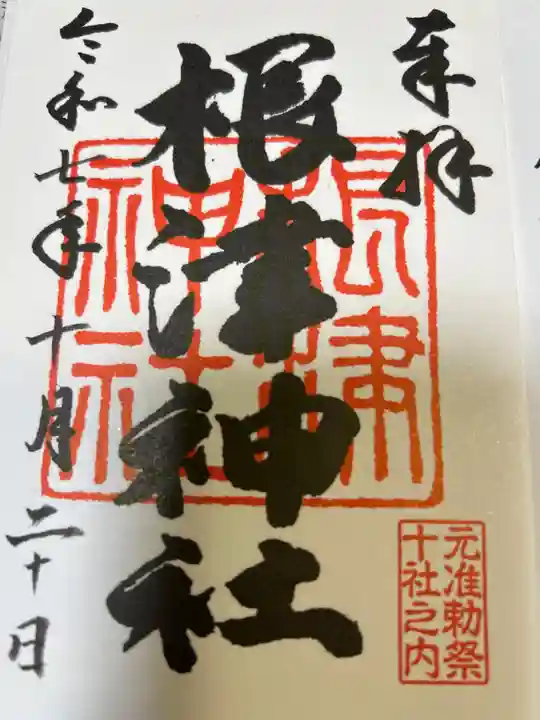 奉拝
根津神社
令和七年十月二十日
根津
神社
元准勅祭
十社之内